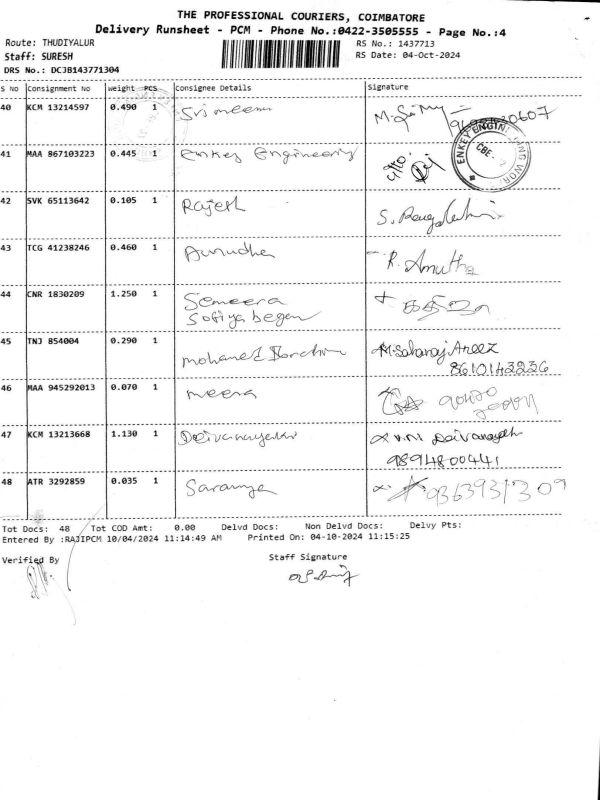 THE PROFESSIONAL COURIERS, COIMBATORE
Delivery Runsheet - PCM - Phone No.:0422-3505555 - Page No.:4
Route: THUDIYALUR
RS No.: 1437713
Staff: SURESH
RS Date: 04-Oct-2024
DRS No.: DCJB143771304
S No Consignment No Weight PCS Consignee Details Signature
40 KCM 13214597 0.490 1 Srimeena
41 MAA 867103223 0.445 1 Enkey Engineering
ENKEY ENGINEERING WOR
CBE
42 SVK 65113642 0.105 1 Rajesh
43 TCG 41238246 0.460 1 Anrudha R. Amutha
44 CNR 1830209 1.250 1 Semeera
Sofiya began
45 TNJ 854004 0.290 1 mohamed Ibrahim
8610143226
46 MAA 945292013 0.070 1 meera
47 KCM 13213668 1.130 1 Deivanayaki
9894800441
48 ATR 3292859 0.035 1 Saranya 9363931309
Tot Docs: 48 Tot COD Amt: 0.00 Delvd Docs: Non Delvd Docs: Delvy Pts:
Entered By :RAJIPCM 10/04/2024 11:14:49 AM Printed On: 04-10-2024 11:15:25
Verified By Staff Signature